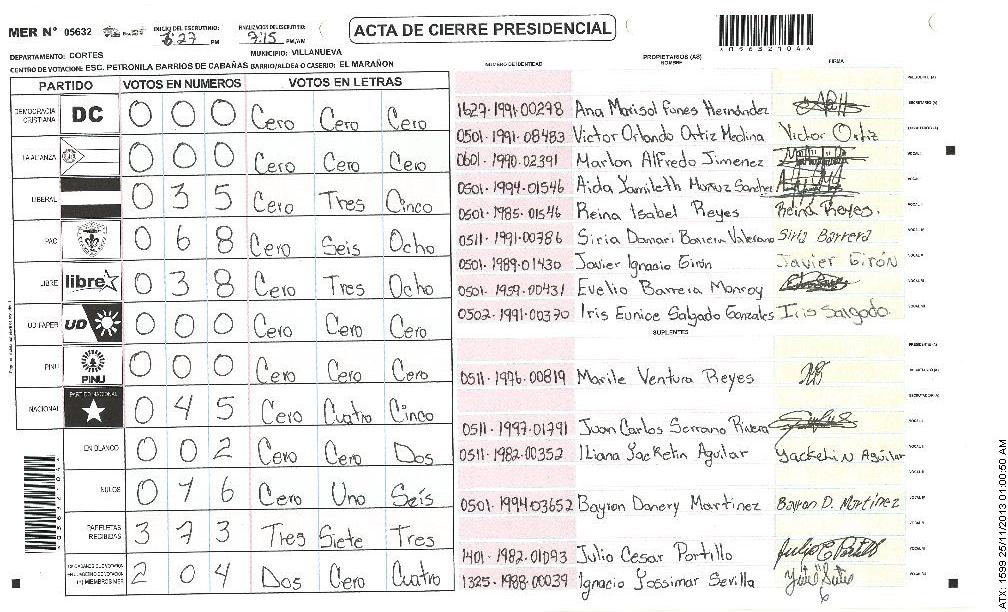 MER Nº 05632 INICIO DEL ESCRUTINIO: 6:27 PM FINALIZACION DEL ESCRUTINIO: 7:15 PM/AM ACTA DE CIERRE PRESIDENCIAL
A056321044
DEPARTAMENTO: CORTES MUNICIPIO: VILLANUEVA
CENTRO DE VOTACION: ESC. PETRONILA BARRIOS DE CABAÑAS BARRIO/ALDEA O CASERIO: EL MARAÑON
NUMERO DE IDENTIDAD PROPIETARIOS (AS) NOMBRE FIRMA
PARTIDO VOTOS EN NUMEROS VOTOS EN LETRAS
DEMOCRACIA CRISTIANA DC 0 0 0 Cero Cero Cero
LA ALIANZA 0 0 0 Cero Cero Cero
LIBERAL 0 3 5 Cero Tres Cinco
PAC 0 6 8 Cero Seis Ocho
LIBRE libre 0 3 8 Cero Tres Ocho
UD FAPER UD 0 0 0 Cero Cero Cero
PINU PINU 0 0 0 Cero Cero Cero
NACIONAL PARTIDO NACIONAL 0 4 5 Cero Cuatro Cinco
EN BLANCO 0 0 2 Cero Cero Dos
NULOS 0 1 6 Cero Uno Seis
PAPELETAS RECIBIDAS 3 7 3 Tres Siete Tres
2 0 4 Dos Cero Cuatro
PRESIDENTE (A)
1627-1991-00278 Ana Marisol Funes Hernández SECRETARIO (A)
0501-1991-08483 Victor Orlando Ortiz Medina Victor Ortiz
0601-1990-02391 Marlon Alfredo Jimenez
0501-1994-01546 Aida Yamileth Munuz Sanchez
0501-1985-01546 Reina Isabel Reyes Reina Reyes.
0511-1991-00786 Siria Damari Barrera Valeriano Siria Barrera
0501-1989-01430 Javier Ignacio Girón Javier Girón
0501-1959-00431 Evelio Barrera Monroy
0502-1991-00370 Iris Eunice Salgado Gonzales Iris Salgado.
SUPLENTES
PRESIDENTE (A)
0511-1976-00819 Marile Ventura Reyes
0511-1997-01791 Juan Carlos Serrano Rivera
0511-1982-00352 Iliana Yackelin Aguilar Yackelin Aguilar
0501-1994-03652 Bayron Danery Martinez Bayron D. Martinez
1401-1982-01093 Julio Cesar Portillo Julio C Portillo
1325-1988-00039 Ignacio Yossimar Sevilla
ATX: 1599 25/11/2013 01:00:50 AM